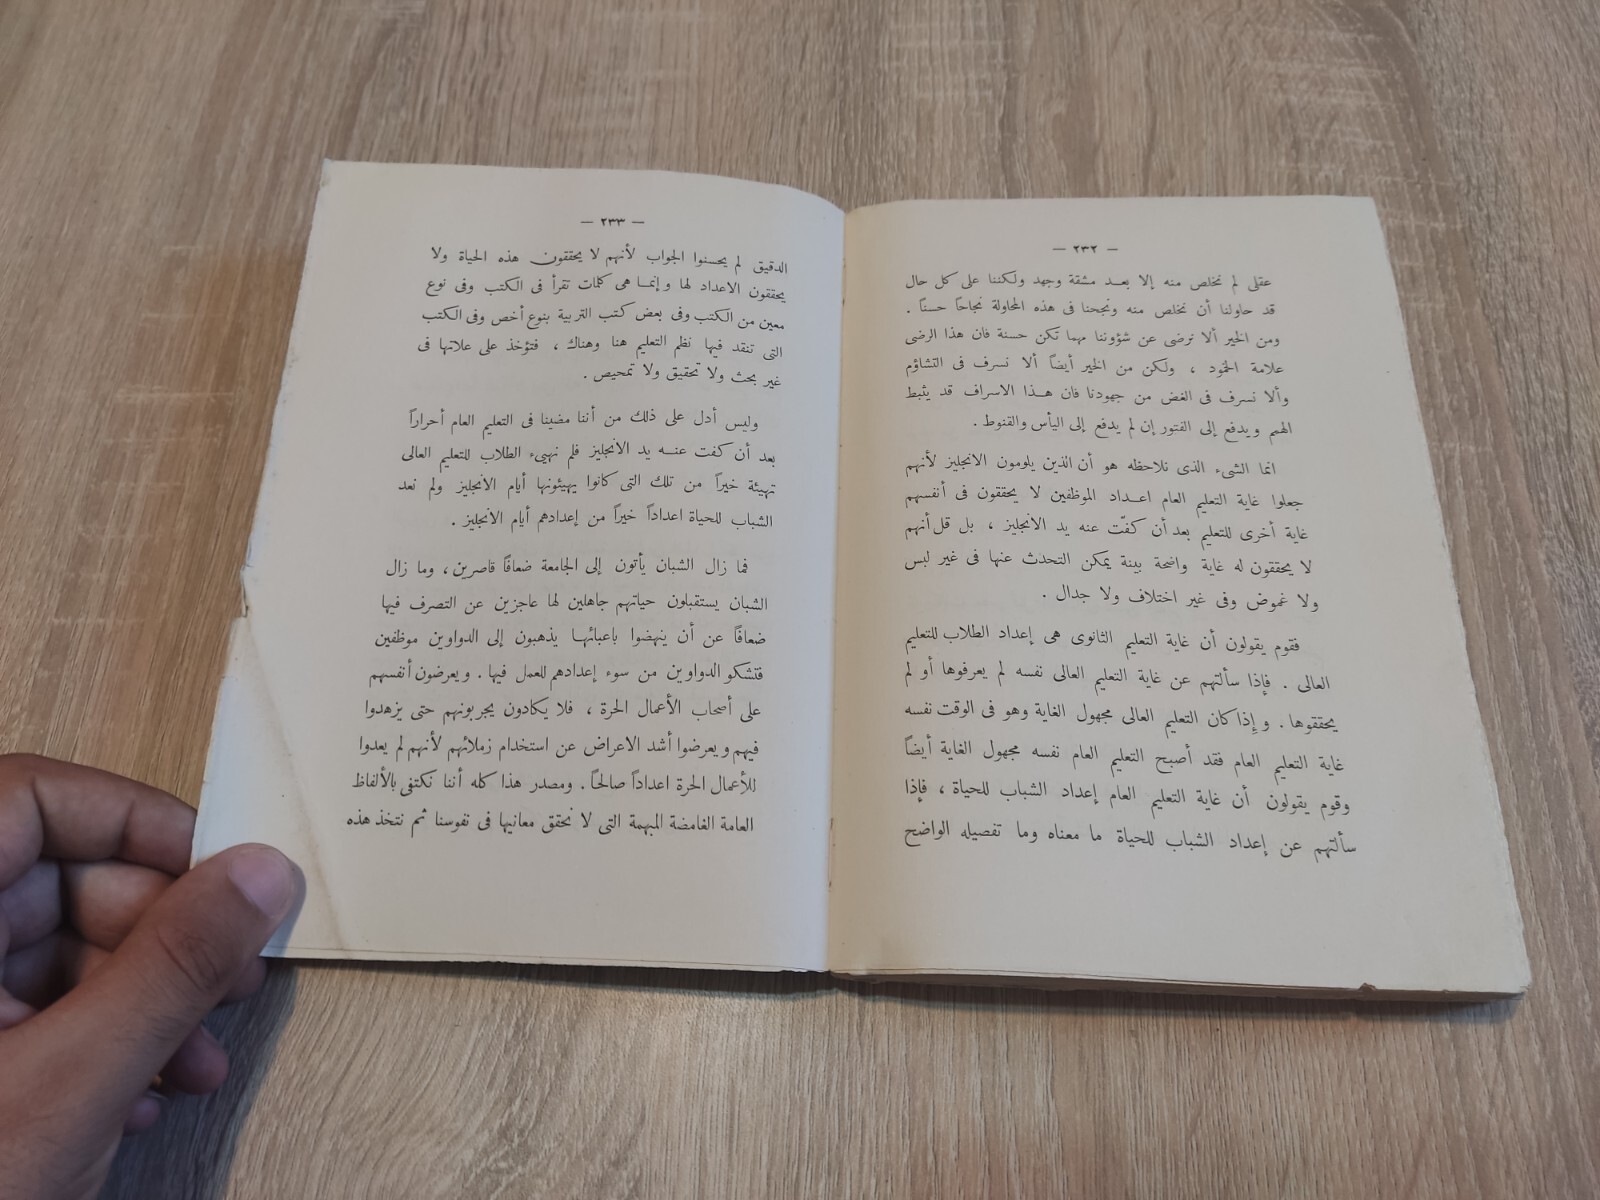 — ٢٣٢ —
عقلى لم نخلص منه إلا بعد مشقة وجهد ولكننا على كل حال
قد حاولنا أن نخلص منه ونجحنا فى هذه المحاولة نجاحاً حسناً .
ومن الخير ألا نرضى عن شؤوننا مهما تكن حسنة فان هذا الرضى
علامة الخمود ، ولكن من الخير أيضاً ألا نسرف فى التشاؤم
وألا نسرف فى الغض من جهودنا فان هذا الاسراف قد يثبط
الهمم ويدفع إلى الفتور إن لم يدفع إلى اليأس والقنوط .
انما الشىء الذى نلاحظه هو أن الذين يلومون الانجليز لأنهم
جعلوا غاية التعليم العام اعداد الموظفين لا يحققون فى أنفسهم
غاية أخرى للتعليم بعد أن كفّت عنه يد الانجليز ، بل قل أنهم
لا يحققون له غاية واضحة بينة يمكن التحدث عنها فى غير لبس
ولا غموض وفى غير اختلاف ولا جدال .
فقوم يقولون أن غاية التعليم الثانوى هى إعداد الطلاب للتعليم
العالى . فإذا سألتهم عن غاية التعليم العالى نفسه لم يعرفوها أو لم
يحققوها . وإذا كان التعليم العالى مجهول الغاية وهو فى الوقت نفسه
غاية التعليم العام فقد أصبح التعليم العام نفسه مجهول الغاية أيضاً
وقوم يقولون أن غاية التعليم العام إعداد الشباب للحياة ، فإذا
سألتهم عن إعداد الشباب للحياة ما معناه وما تفصيله الواضح
— ٢٣٣ —
الدقيق لم يحسنوا الجواب لأنهم لا يحققون هذه الحياة ولا
يحققون الاعداد لها وإنما هى كلمات تقرأ فى الكتب وفى نوع
معين من الكتب وفى بعض كتب التربية بنوع أخص وفى الكتب
التى تنقد فيها نظم التعليم هنا وهناك ، فتؤخذ على علاتها فى
غير بحث ولا تحقيق ولا تمحيص .
وليس أدل على ذلك من أننا مضينا فى التعليم العام أحراراً
بعد أن كفت عنه يد الانجليز فلم نهيىء الطلاب للتعليم العالى
تهيئة خيراً من تلك التى كانوا يهيئونها أيام الانجليز ولم نعد
الشباب للحياة اعداداً خيراً من إعدادهم أيام الانجليز .
فما زال الشبان يأتون إلى الجامعة ضعافاً قاصرين ، وما زال
الشبان يستقبلون حياتهم جاهلين لها عاجزين عن التصرف فيها
ضعافاً عن أن ينهضوا باعبائها يذهبون إلى الدواوين موظفين
فتشكو الدواوين من سوء إعدادهم للعمل فيها . ويعرضون أنفسهم
على أصحاب الأعمال الحرة ، فلا يكادون يجربونهم حتى يزهدوا
فيهم ويعرضوا أشد الاعراض عن استخدام زملائهم لأنهم لم يعدوا
للأعمال الحرة اعداداً صالحاً . ومصدر هذا كله أننا نكتفى بالألفاظ
العامة الغامضة المبهمة التى لا نحقق معانيها فى نفوسنا ثم نتخذ هذه